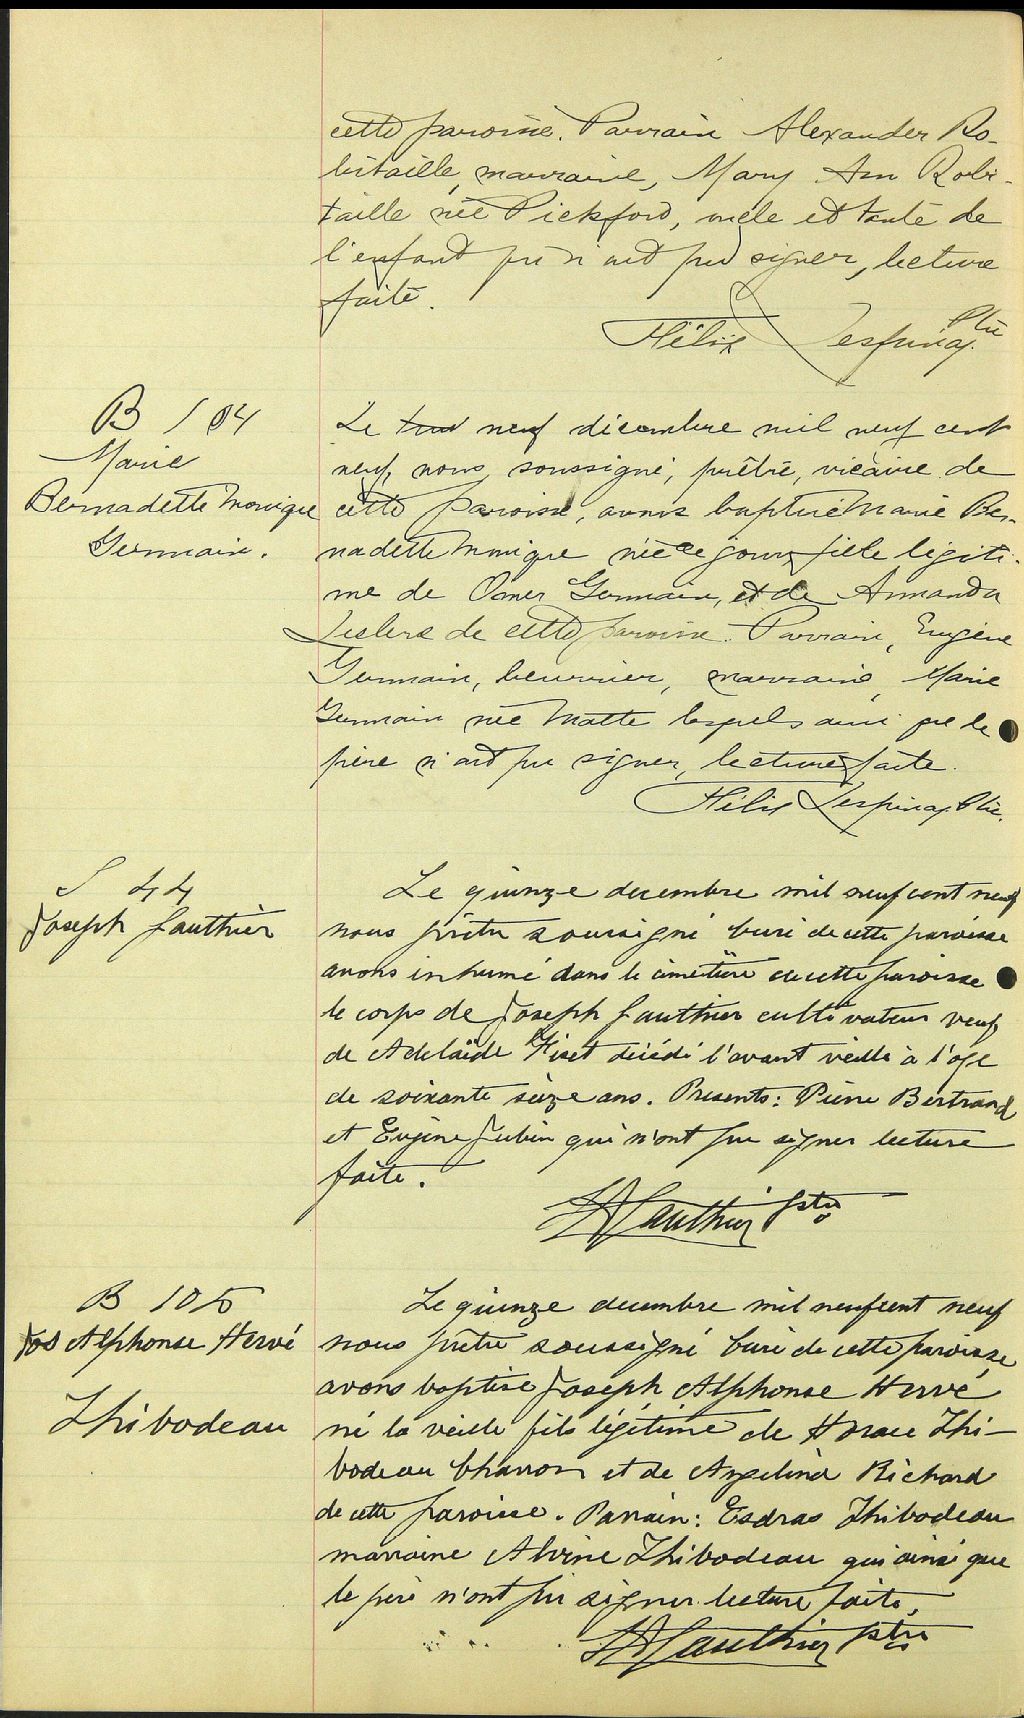 cette paroisse. Parrain Alexander Ro-
bitaille, marraine, Mary Ann Robi-
taille née Pickford, oncle et tante de
l'enfant qui n'ont pu signer, lecture
faite.
Félix Lespinay. Ptre
B 104
Marie
Bernadette Monique
Germain.
Le neuf décembre mil neuf cent
neuf, nous soussigné, prêtre, vicaire de
cette paroisse, avons baptisé Marie Ber-
nadette Monique née ce jour, fille légiti-
me de Omer Germain, et de Armanda
de cette paroisse. Parrain, Eugène
Germain, beurrier, marraine, Marie
Germain née Matte lesquels ainsi que le
père n'ont pu signer, lecture faite.
Félix Lespinay. Ptre.
S 44
Joseph Gauthier
Le quinze decembre mil neuf cent neuf
nous prêtre soussigné curé de cette paroisse
avons inhumé dans le cimetière de cette paroisse
le corps de Joseph Gauthier cultivateur veuf
de Adelaïde Fiset décédé l'avant veille à l'age
de soixante seize ans. Présents: Pierre Bertrand
et Eugène Jubin qui n'ont pu signer lecture
faite.
Gauthier ptre
B 105
Jos Alphonse Hervé
Thibodeau
Le quinze decembre mil neuf cent neuf
nous prêtre soussigné curé de cette paroisse
avons baptisé Joseph Alphonse Hervé
né la veille fils légitime de Horace Thi-
bodeau charron et de Angelina Richard
de cette paroisse. Parrain: Esdras Thibodeau
marraine Alvine Thibodeau qui ainsi que
le père n'ont pu signer lecture faite.
Gauthier ptre